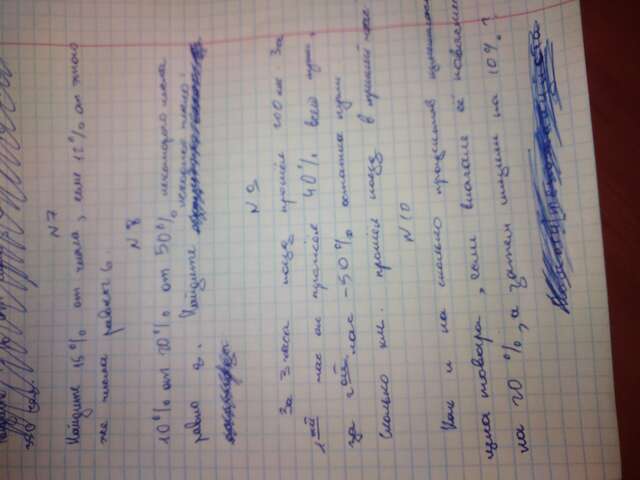 N7
Найдите 15% от числа, если 12% от этого
же числа равны 6.
N8
10% от 20% от 50% некоторого числа
равно 2. Найдите исходное число.
N9
За 3 часа поезд прошёл 200 км За
1ый час он прошёл 40% всего пути,
за 2ой час - 50% остатка пути
Сколько км. прошёл поезд в третий час
N10
Как и на сколько процентов
цена товара, если вначале её
на 20%, а затем на 10%?